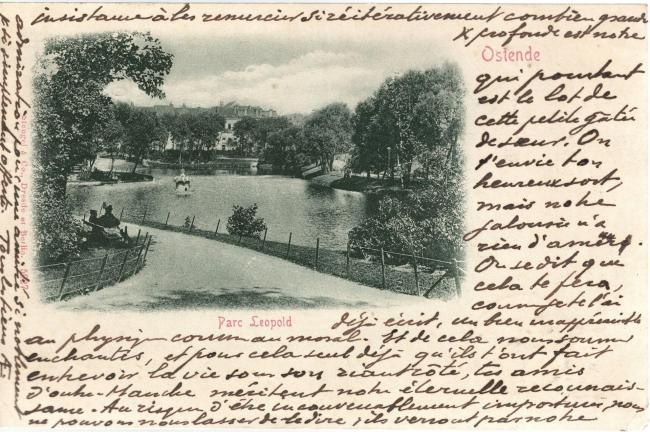 insistance à les remercier si réitérativement combien grande
X profonde est notre
Ostende
qui pourtant
est le lot de
cette petite gâtée
de sœur. On
t'envie ton
heureux sort,
mais notre
jalousie n'a
rien d'amère.
On se dit que
cela te fera,
comme je l'ai
Parc Leopold
déjà écrit, un bien inappréciable
au physique comme au moral. Et de cela nous sommes
enchantés, et pour cela seul déjà qu'ils t'ont fait
entrevoir la vie sous son riant côté, tes amis
d'outre-Manche méritent notre éternelle reconnais-
sance. Au risque d'être inconvenablement importuns, nous
ne pouvons nous lasser de le dire, ils verront par notre
admiration
si noblement